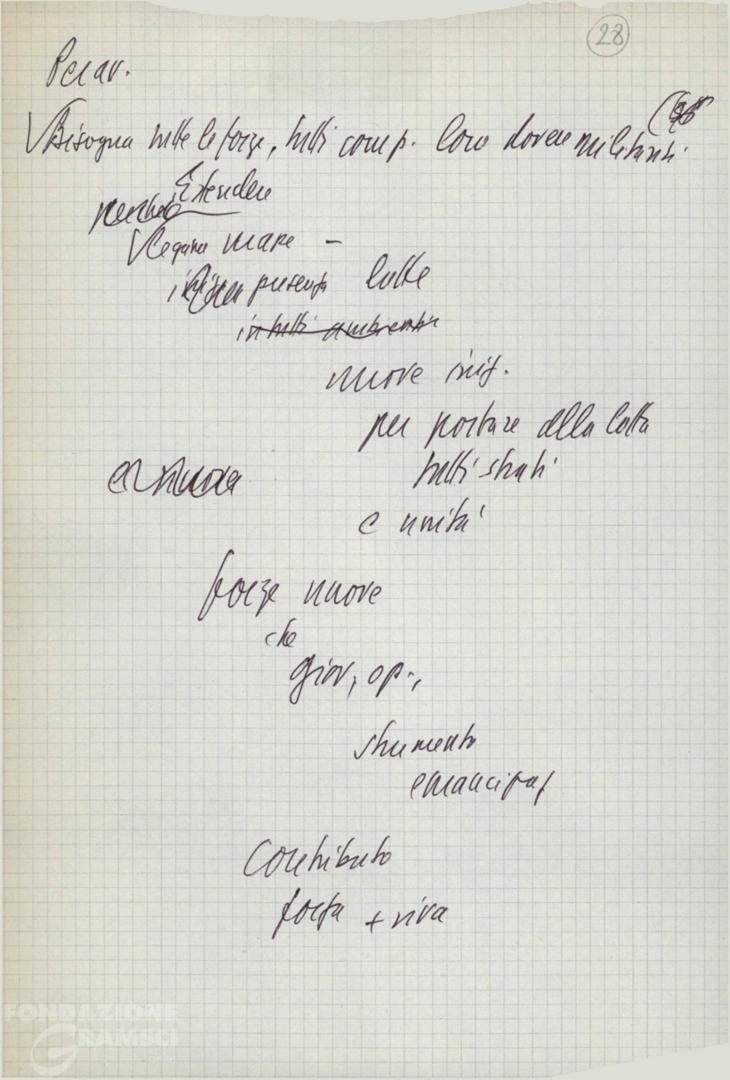 28
Per av.
Bisogna tutte le forze, tutti comp. loro dovere militanti.
perché Estendere
legami mare –
presenza lotte
in tutti ambienti
nuove iniz.
per portare alla lotta
tutti strati
e unità
forze nuove
che
giov, op.,
strumento
emancipaz
Contributo
forza + viva
FONDAZIONE
GRAMSCI